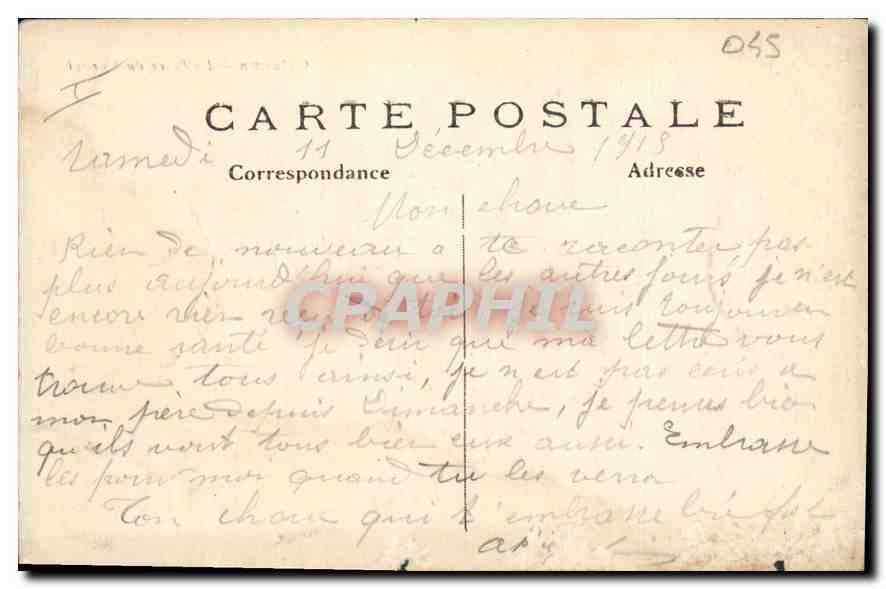 045
CARTE POSTALE
Samedi 11 Décembre 1915
Correspondance
Adresse
Mon choue
Rien de nouveau a te raconter pas
plus aujourd'hui que les autres jours je n'est
encore rien reçu toujours en
bonne santé je desir que ma lettre vous
trouve tous ainsi, je n'est pas ecris a
mon père depuis Dimanche, je pense bien
qu'ils vont tous bien eux aussi. Embrasse
les pour moi quand tu les verra
Ton choue qui t'embrasse bien fort
CPAPHIL